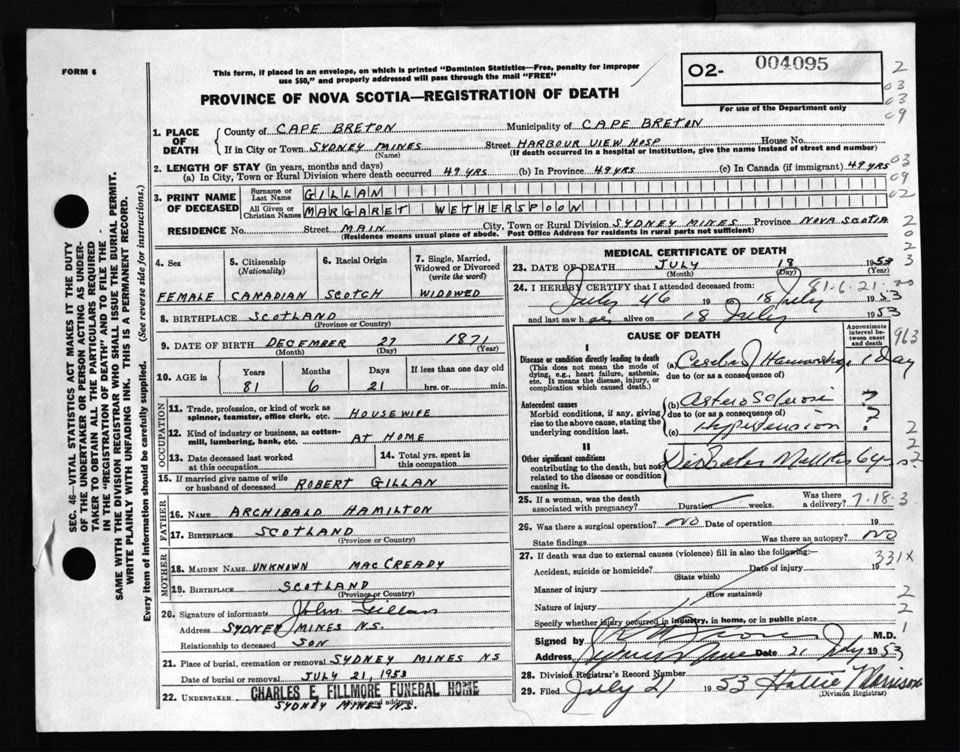 FORM 6
This form, if placed in an envelope, on which is printed "Dominion Statistics—Free, penalty for improper
use $50," and properly addressed will pass through the mail "FREE"
PROVINCE OF NOVA SCOTIA—REGISTRATION OF DEATH
02- 004095
For use of the Department only
2
03
03
09
1. PLACE OF DEATH
County of CAPE BRETON Municipality of CAPE BRETON
If in City or Town SYDNEY MINES Street HARBOUR VIEW HOSP. House No.
(Name) (If death occurred in a hospital or institution, give the name instead of street and number)
2. LENGTH OF STAY (in years, months and days)
(a) In City, Town or Rural Division where death occurred 49 YRS (b) In Province 49 YRS (c) In Canada (if immigrant) 49 YRS
03
09
02
3. PRINT NAME OF DECEASED
Surname or Last Name GILLAN
All Given or Christian Names MARGARET WETHERSPOON
RESIDENCE No. Street MAIN City, Town or Rural Division SYDNEY MINES Province NOVA SCOTIA
(Residence means usual place of abode. Post Office Address for residents in rural parts not sufficient)
2
0
2
3
SEC. 46—VITAL STATISTICS ACT MAKES IT THE DUTY
OF THE UNDERTAKER OR PERSON ACTING AS UNDER-
TAKER TO OBTAIN ALL THE PARTICULARS REQUIRED
IN THE "REGISTRATION OF DEATH" AND TO FILE THE
SAME WITH THE DIVISION REGISTRAR WHO SHALL ISSUE THE BURIAL PERMIT.
WRITE PLAINLY WITH UNFADING INK. THIS IS A PERMANENT RECORD.
Every item of information should be carefully supplied. (See reverse side for instructions.)
4. Sex
FEMALE
5. Citizenship
(Nationality)
CANADIAN
6. Racial Origin
SCOTCH
7. Single, Married,
Widowed or Divorced
(write the word)
WIDOWED
8. BIRTHPLACE SCOTLAND
(Province or Country)
9. DATE OF BIRTH DECEMBER 27 1871
(Month) (Day) (Year)
10. AGE in Years Months Days If less than one day old
81 6 21 hrs. or min.
OCCUPATION
11. Trade, profession, or kind of work as
spinner, teamster, office clerk, etc. HOUSEWIFE
12. Kind of industry or business, as cotton-
mill, lumbering, bank, etc. AT HOME
13. Date deceased last worked
at this occupation
14. Total yrs. spent in
this occupation
15. If married give name of wife
or husband of deceased ROBERT GILLAN
FATHER
16. NAME ARCHIBALD HAMILTON
17. BIRTHPLACE SCOTLAND
(Province or Country)
MOTHER
18. MAIDEN NAME UNKNOWN MACCREADY
19. BIRTHPLACE SCOTLAND
(Province or Country)
20. Signature of informant John Gillan
Address SYDNEY MINES N.S.
Relationship to deceased SON
21. Place of burial, cremation or removal SYDNEY MINES NS
Date of burial or removal JULY 21, 1953
22. UNDERTAKER CHARLES E. FILLMORE FUNERAL HOME
(Name and address)
SYDNEY MINES N.S.
MEDICAL CERTIFICATE OF DEATH
23. DATE OF DEATH JULY 18 1953
(Month) (Day) (Year)
24. I HEREBY CERTIFY that I attended deceased from: 81-6-21-00
July 46 19 18 July 1953
and last saw her alive on 18 July 1953
CAUSE OF DEATH
Approximate
interval be-
tween onset
and death
963
I
Disease or condition directly leading to death
(This does not mean the mode of
dying, e.g., heart failure, asthenia,
etc. It means the disease, injury, or
complication which caused death.)
(a) Cerebral Hemorrhage 1 Day
due to (or as a consequence of)
Antecedent causes
Morbid conditions, if any, giving
rise to the above cause, stating the
underlying condition last.
(b) Arterosclerosis ?
due to (or as a consequence of) ?
(c) Hypertension ?
II
Other significant conditions
contributing to the death, but not
related to the disease or condition
causing it.
Diabetes Mellitus 6 yrs
2
2
2
25. If a woman, was the death
associated with pregnancy? Duration weeks. Was there
a delivery?
7-18-3
26. Was there a surgical operation? NO Date of operation 19
State findings Was there an autopsy? NO
27. If death was due to external causes (violence) fill in also the following:— 331X
Accident, suicide or homicide? Date of injury 19
(State which)
Manner of injury 2
(How sustained)
Nature of injury 2
Specify whether injury occurred in industry, in home, or in public place 1
Signed by M.D.
Address Sydney Mines Date 21 July 1953
28. Division Registrar's Record Number
29. Filed July 21 1953 Hallie Morrison
(Division Registrar)